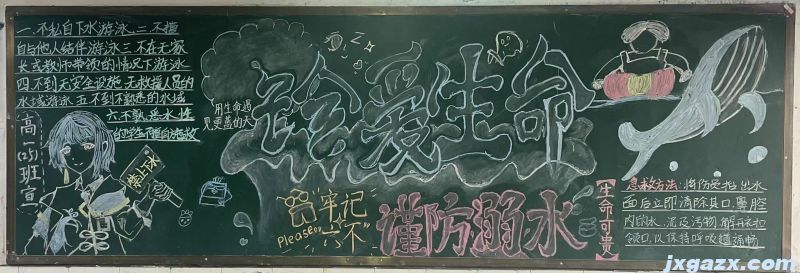 一.不私自下水游泳 二.不擅
自与他人结伴游泳 三.不在无家
长或教师带领的情况下游泳
四.不到无安全设施、无救援人员的
水域游泳 五.不到不熟悉的水域
六.不熟悉水性
的学生不擅自施救
高一(5)班宣
禁止下水
用生命遇
见更蓝的天
珍爱生命
牢记
Please
"六不"
谨防溺水
生命可贵
急救方法:将伤员抬出水
面后立即清除其口、鼻腔
内的水、泥及污物,解开衣扣
领口,以保持呼吸道通畅
jxgazx.com